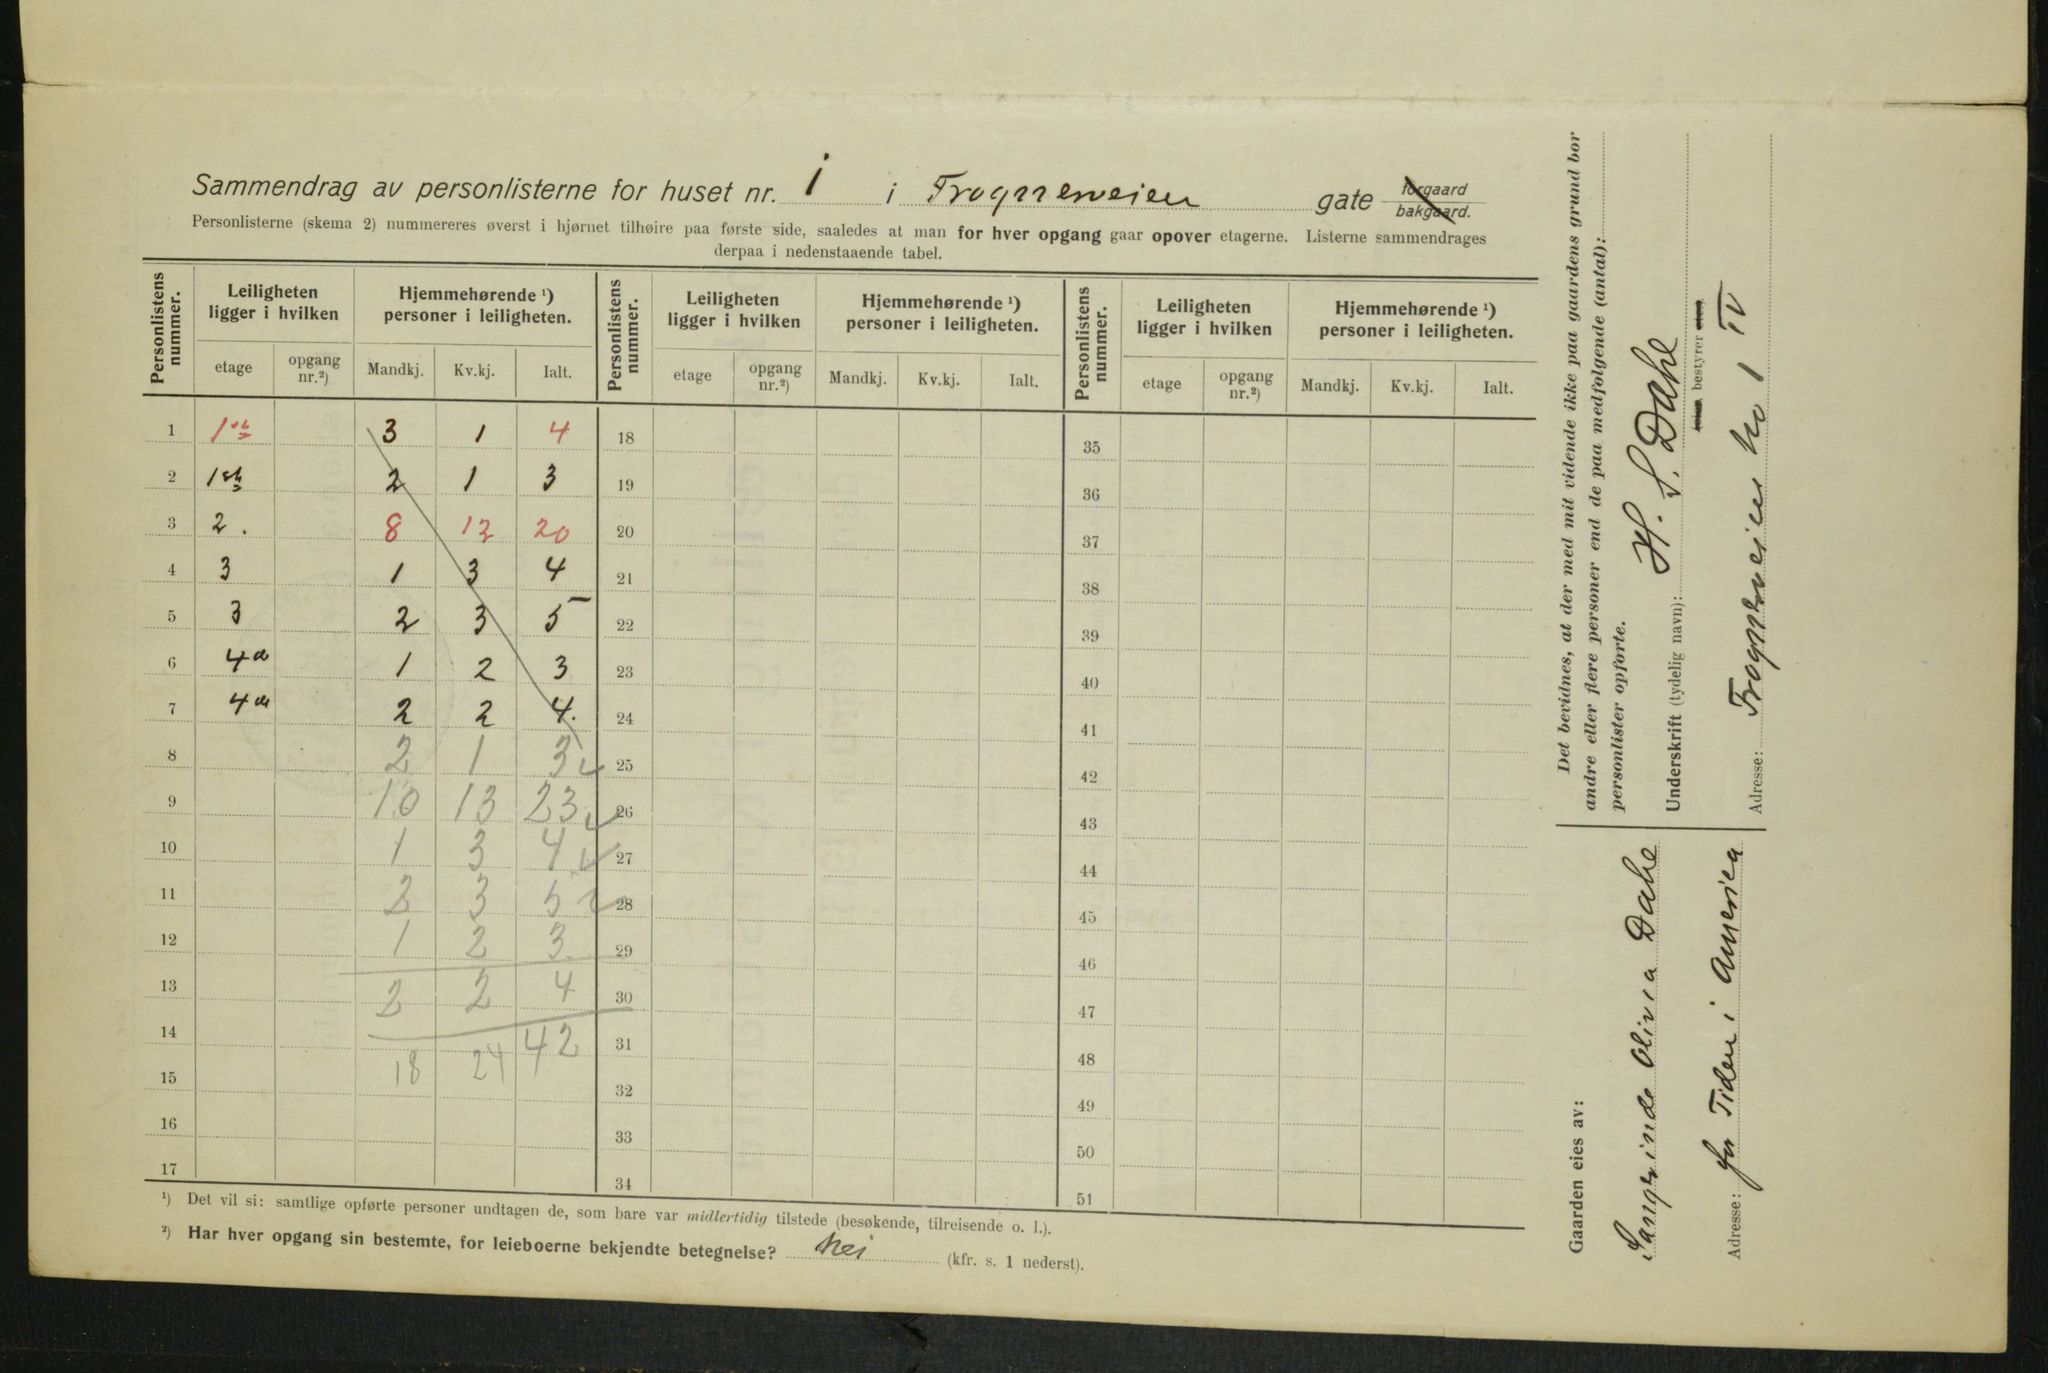 Sammendrag av personlisterne for huset nr. 1 i Frognerveien gate forgaard bakgaard.
Personlisterne (skema 2) nummereres øverst i hjørnet tilhøire paa første side, saaledes at man for hver opgang gaar opover etagerne. Listerne sammendrages
derpaa i nedenstaaende tabel.
Personlistens nummer. Leiligheten ligger i hvilken Hjemmehørende ¹) personer i leiligheten. Personlistens nummer. Leiligheten ligger i hvilken Hjemmehørende ¹) personer i leiligheten. Personlistens nummer. Leiligheten ligger i hvilken Hjemmehørende ¹) personer i leiligheten.
etage opgang nr.²) Mandkj. Kv.kj. Ialt. etage opgang nr.²) Mandkj. Kv.kj. Ialt. etage opgang nr.²) Mandkj. Kv.kj. Ialt.
1 1ste 3 1 4 18 35
2 1ste 2 1 3 19 36
3 2. 8 12 20 20 37
4 3 1 3 4 21 38
5 3 2 3 5 22 39
6 4de 1 2 3 23 40
7 4de 2 2 4. 24 41
8 2 1 3 25 42
9 10 13 23 26 43
10 1 3 4 27 44
11 2 3 5 28 45
12 1 2 3 29 46
13 2 2 4 30 47
14 42 31 48
15 18 24 32 49
16 33 50
17 34 51
¹) Det vil si: samtlige opførte personer undtagen de, som bare var midlertidig tilstede (besøkende, tilreisende o. l.).
²) Har hver opgang sin bestemte, for leieboerne bekjendte betegnelse? Nei (kfr. s. 1 nederst).
Det bevidnes, at der med mit vidende ikke paa gaardens grund bor
andre eller flere personer end de paa medfølgende (antal):
personlister opførte.
Underskrift (tydelig navn): H. S. Dahl
bestyrer
Adresse: Frognerveien No 1 IV
Gaarden eies av:
Olivia Dahl
Adresse: for Tiden i Amerika